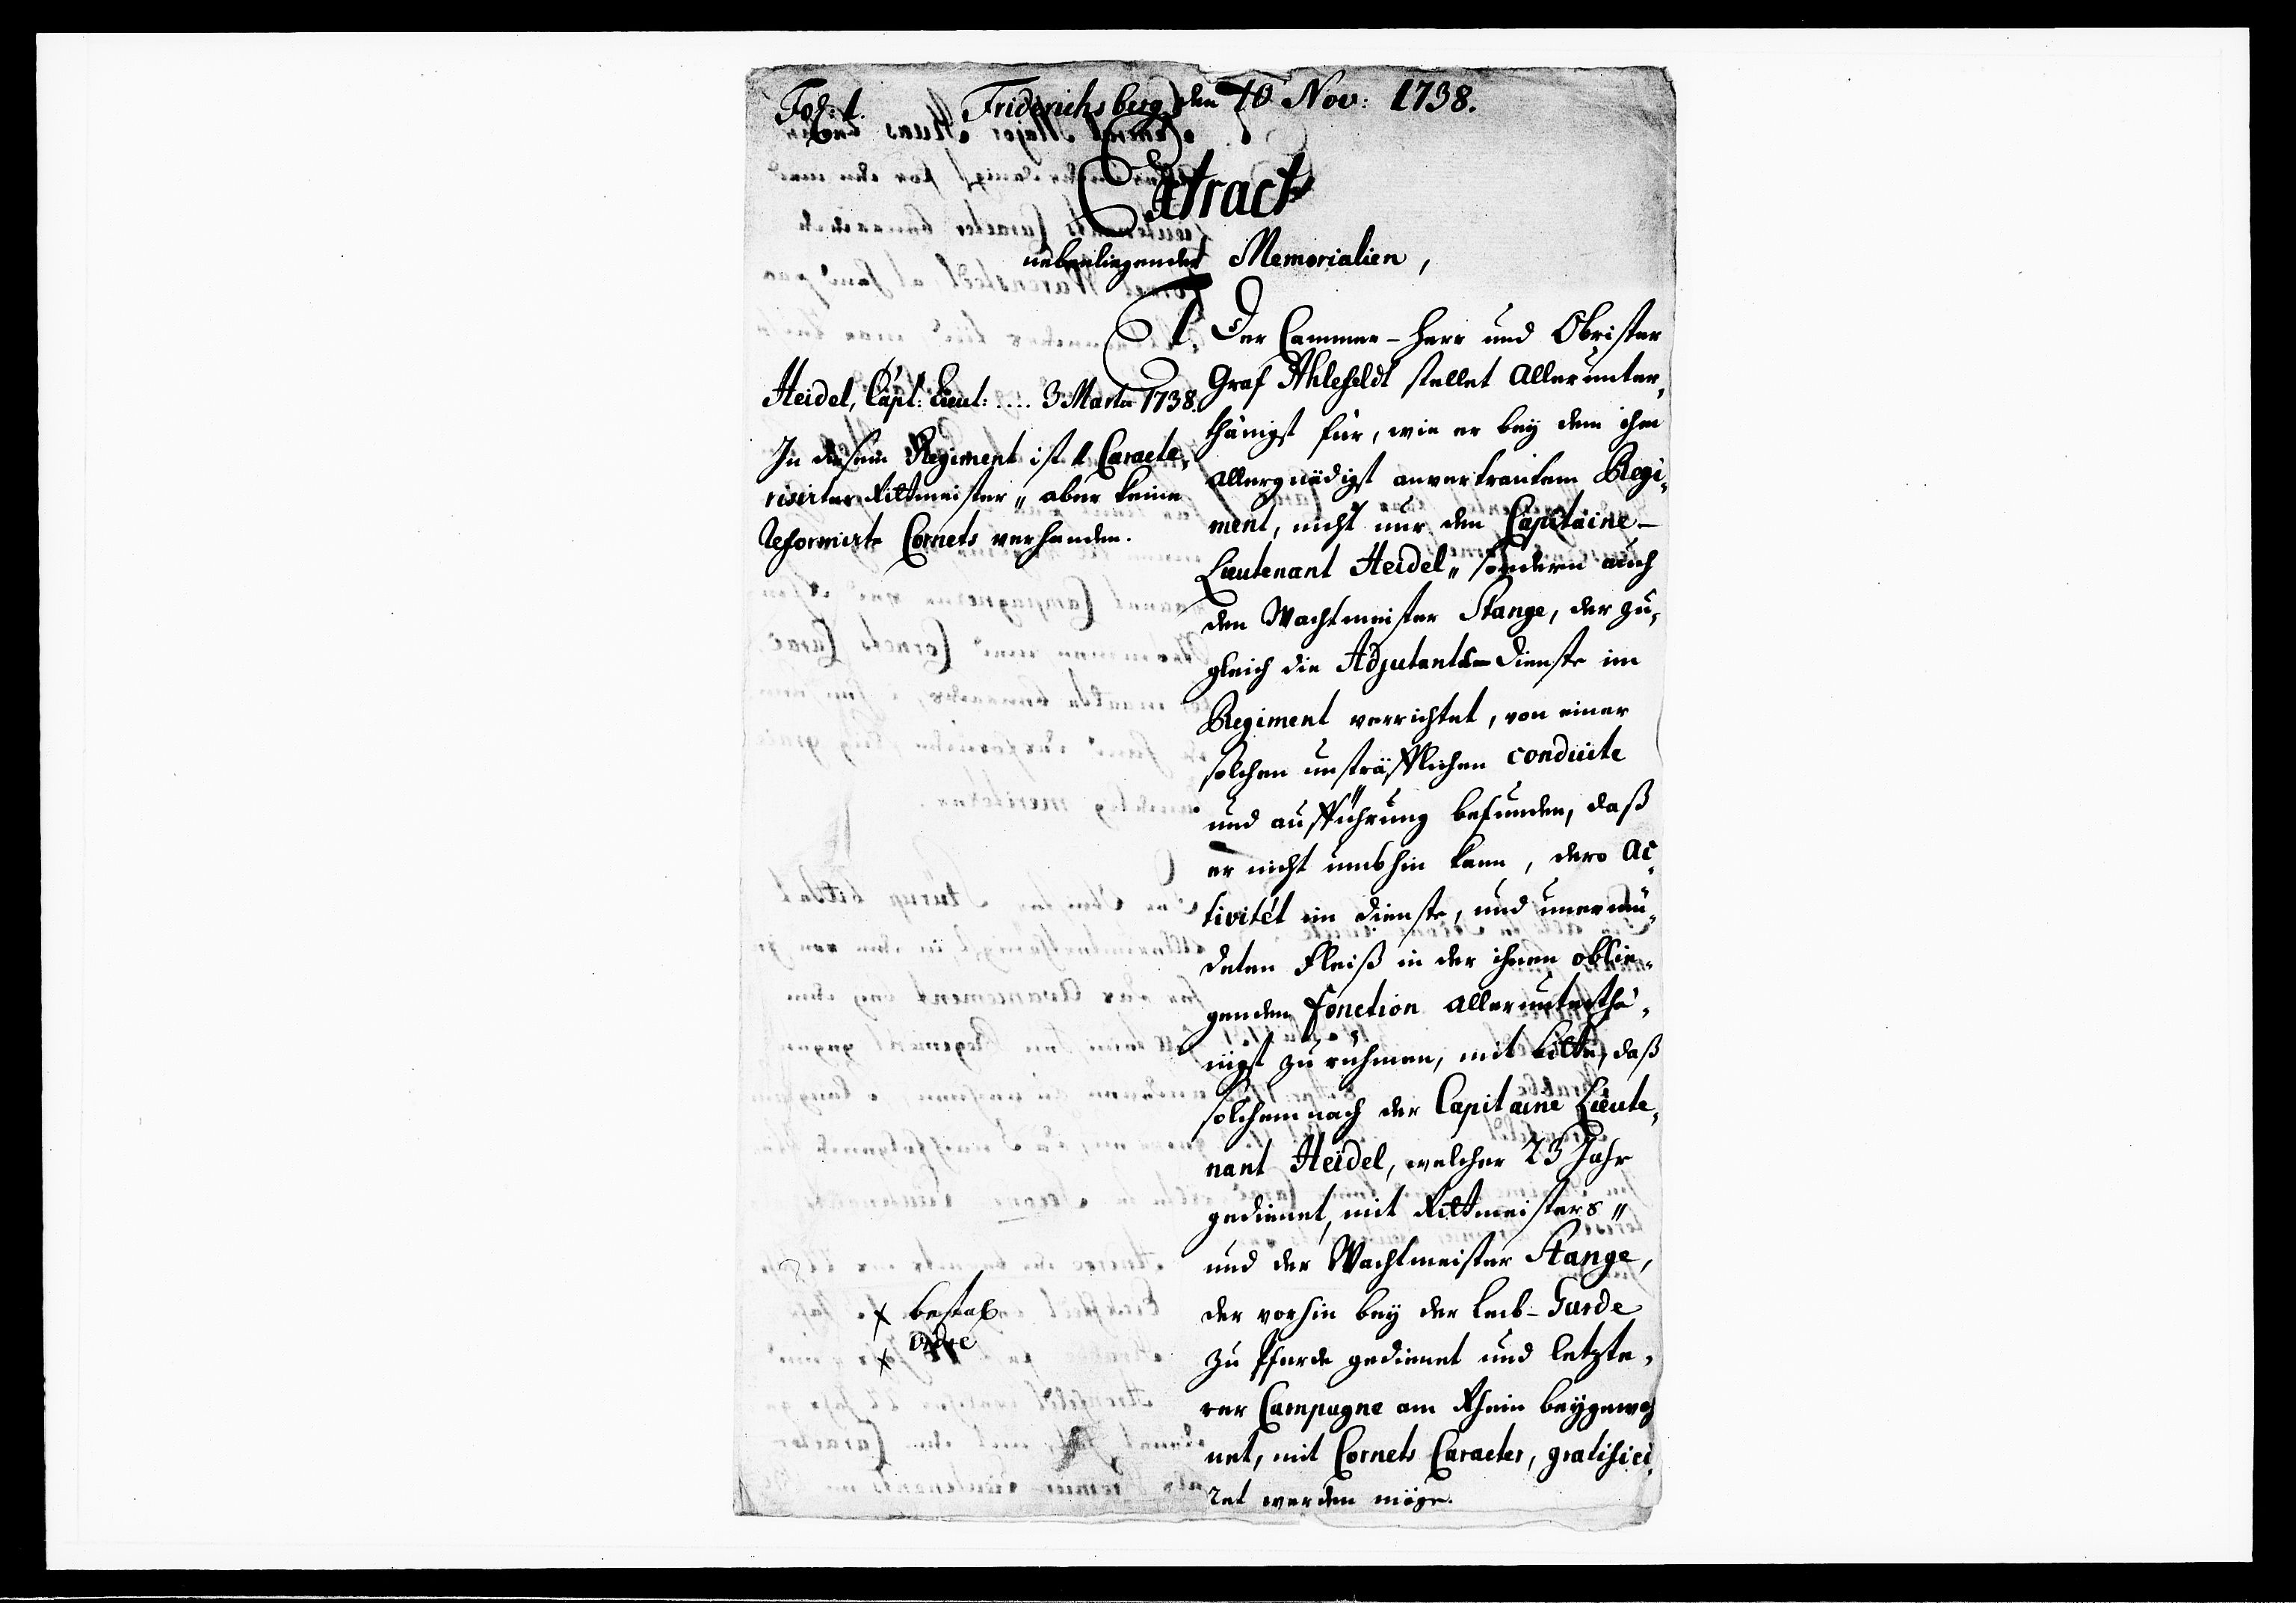 Fol: 1. Friderichsberg den 10 Nov: 1738.
Extract
nebenliegender Memorialien,
1. Der Cammer-Herr und Obrister
Graf Ahlefeldt stellet allerunter-
thänigst für, wie er bey dem ihm
allergnädigst anvertrautem Regi-
ment, nicht nur den Capitaine-
Lieutenant Heidel „ sondern auch
den Wachtmeister Stange, der zu-
gleich die Adjutants-Dienste im
Regiment verrichtet, von einer
solchen unsträfflichen conduite
und aufführung befunden, daß
er nicht umbhin kann, dero ac-
tivitét im Dienste, und unermü-
deten Fleiß in der ihnen oblie-
genden fonction allerunterthä-
nigst zu rühmen, mit bitte, daß
solchemnach der Capitaine Lieute-
nant Heidel, welcher 23 Jahr
gedienet, mit Rittmeisters „
und der Wachtmeister Stange,
der vorhin bey der Leib-Garde
zu Pferde gedienet und letzte-
rer Campagne am Rhein beygewoh
net, mit Cornets Caracter, gratifici-
ret werden möge.
Heidel, Capt: Lieut: .... 3 Martii 1738.
In diesem Regiment ist 1 Caracte-
risirter Rittmeister „ aber keine
Reformirte Cornets verhanden.
x
x ordre